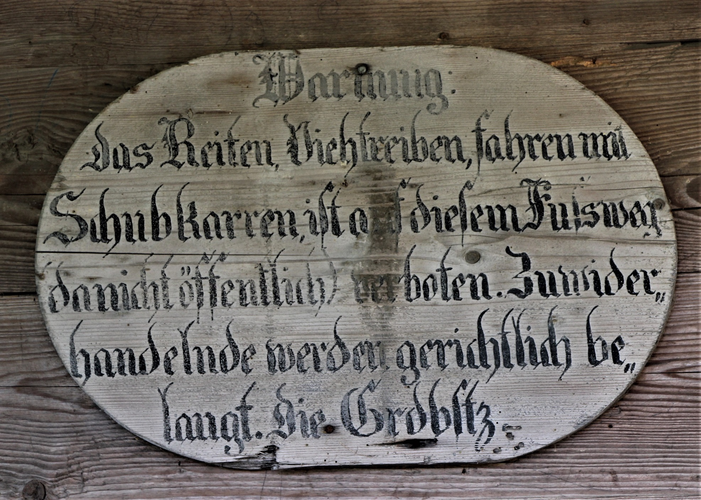 Warnung:
das Reiten, Viehtreiben, fahren mit
Schubkarren, ist auf diesem Fussweg
(da nicht öffentlich) verboten. Zuwider„
handelnde werden gerichtlich be„
langt. die Grdbstz.